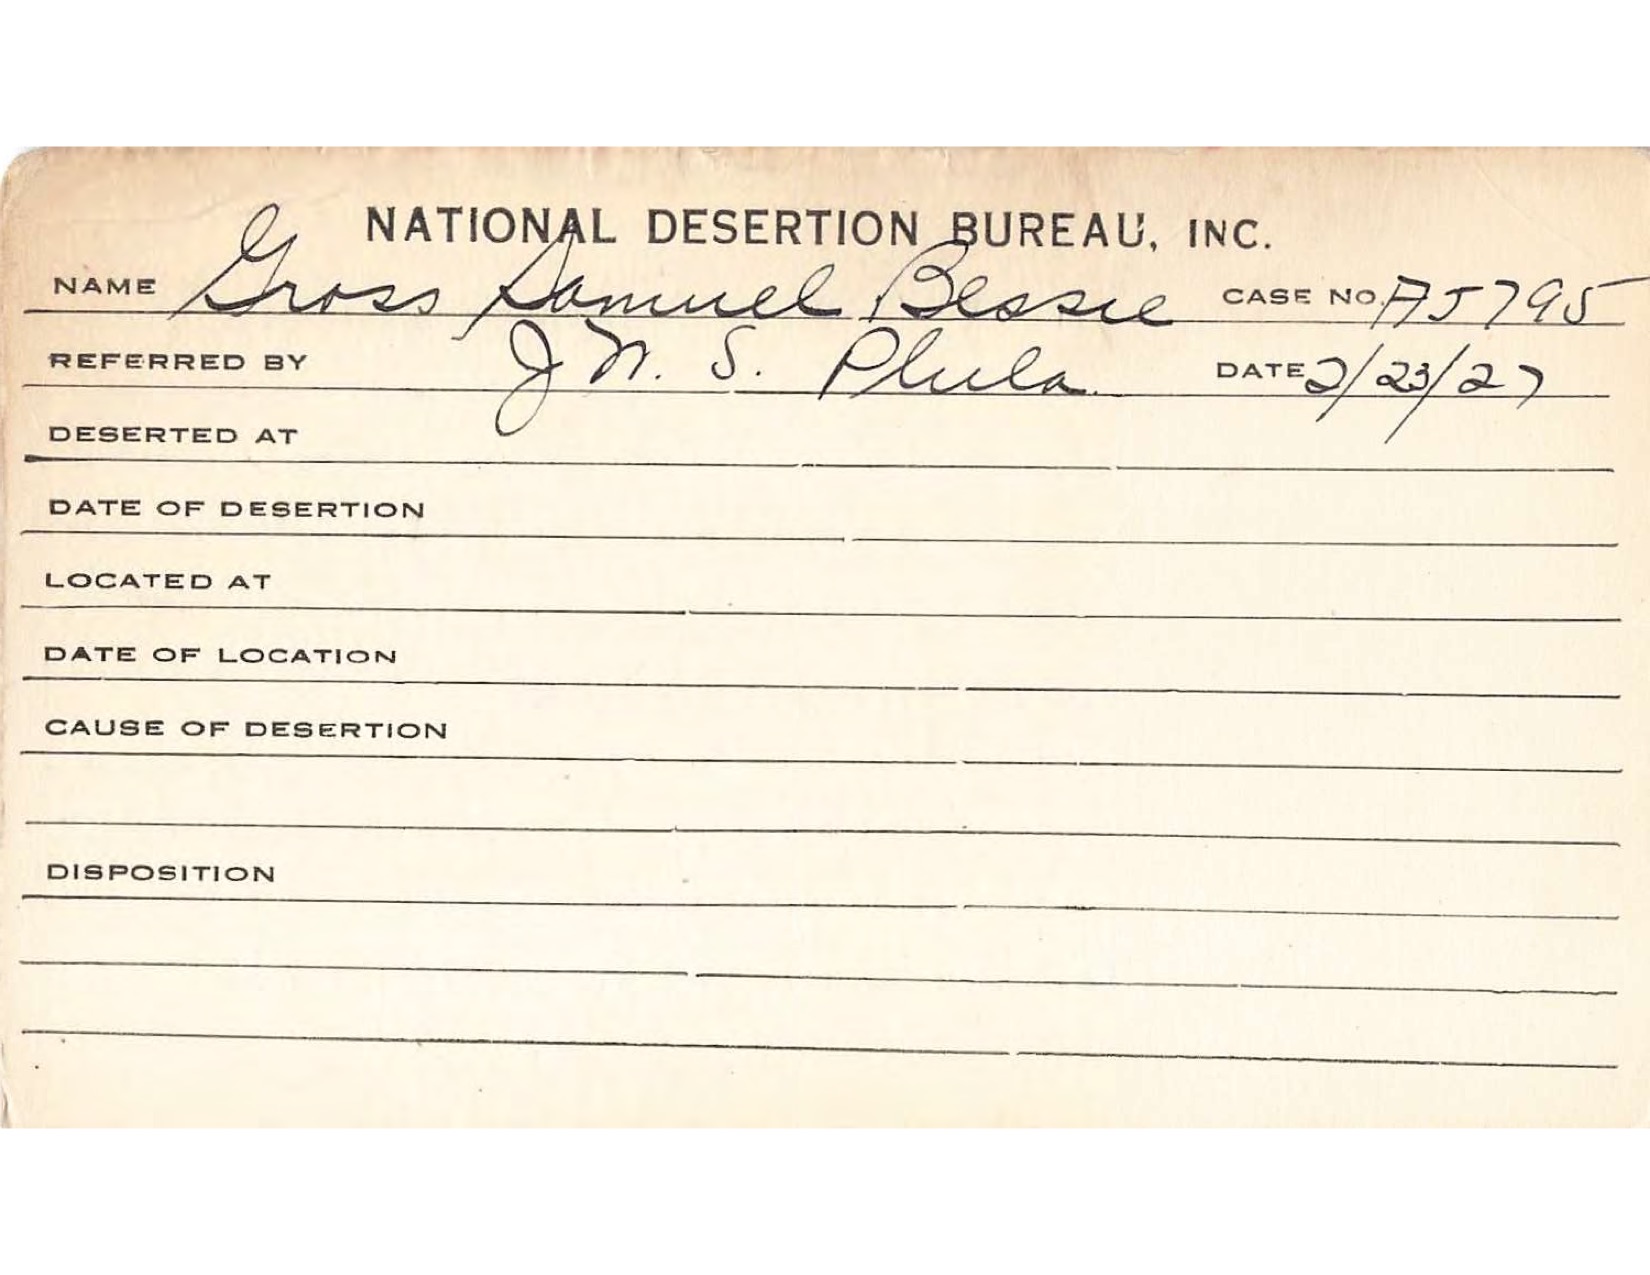 NATIONAL DESERTION BUREAU, INC.
NAME Gross Samuel Bessie CASE NO. A5795
REFERRED BY J W. S. Phila. DATE 2/23/27
DESERTED AT
DATE OF DESERTION
LOCATED AT
DATE OF LOCATION
CAUSE OF DESERTION
DISPOSITION